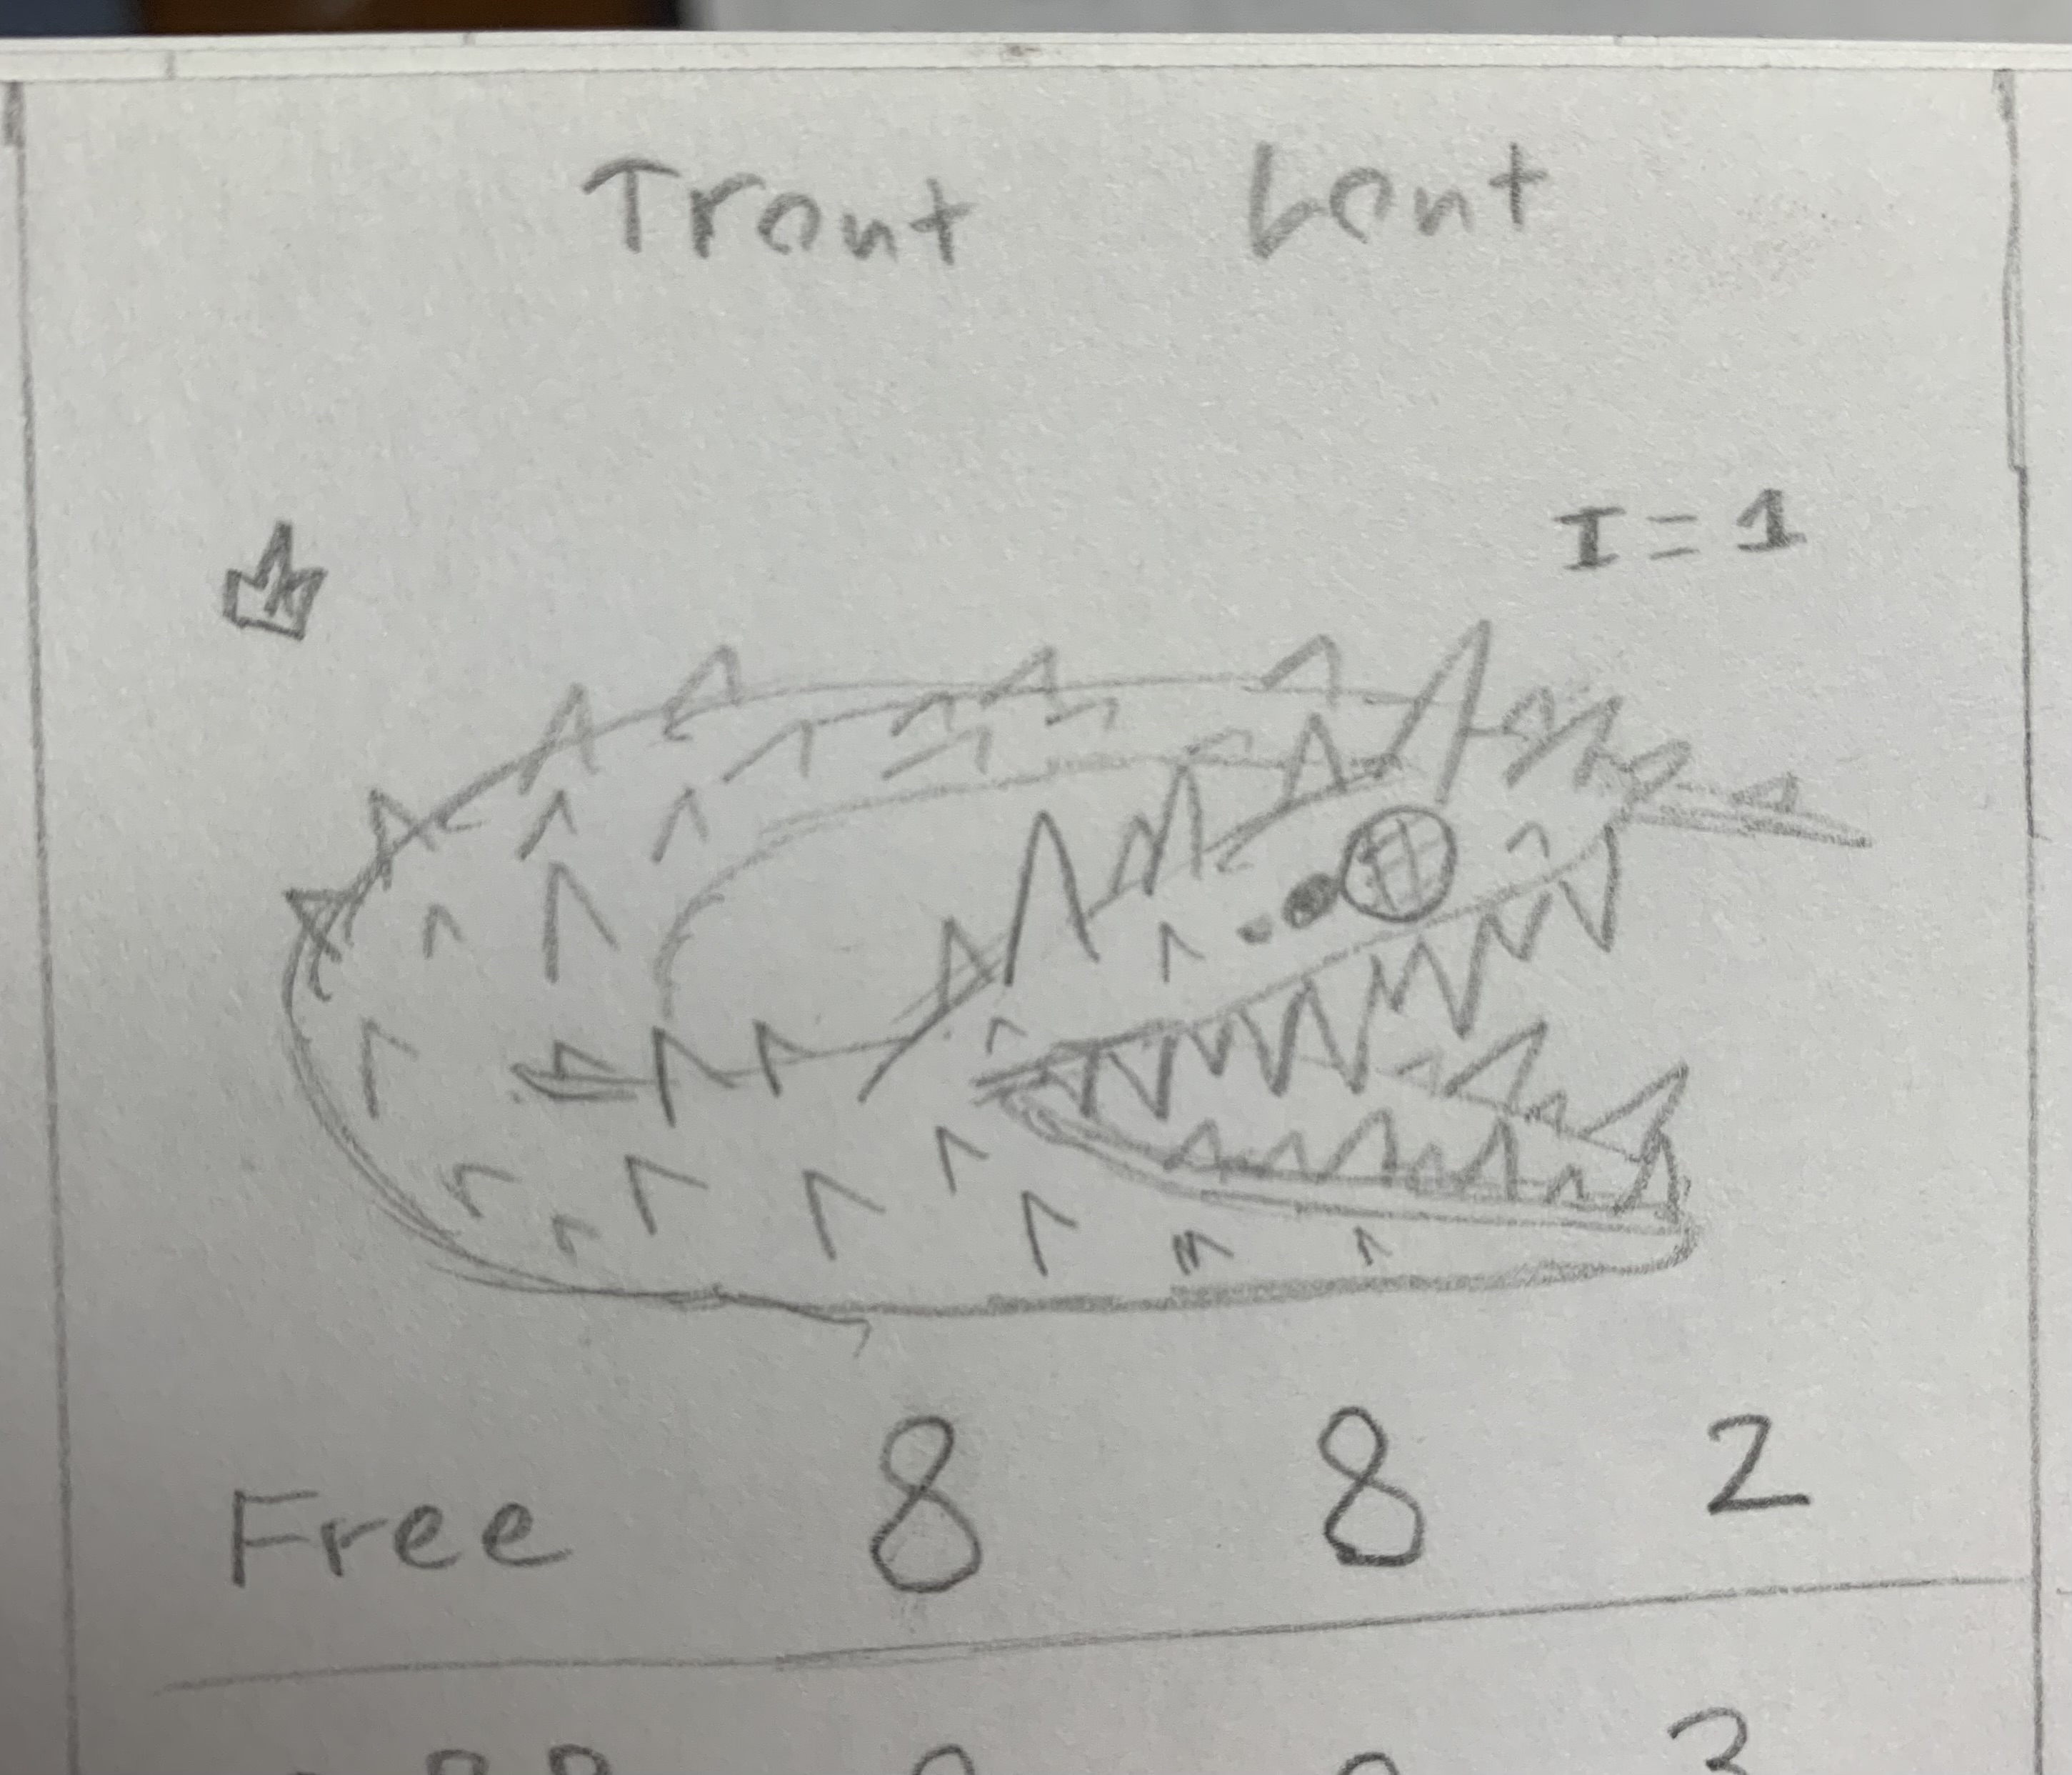 Tront Lont
I = 1
Free 8 8 2
3